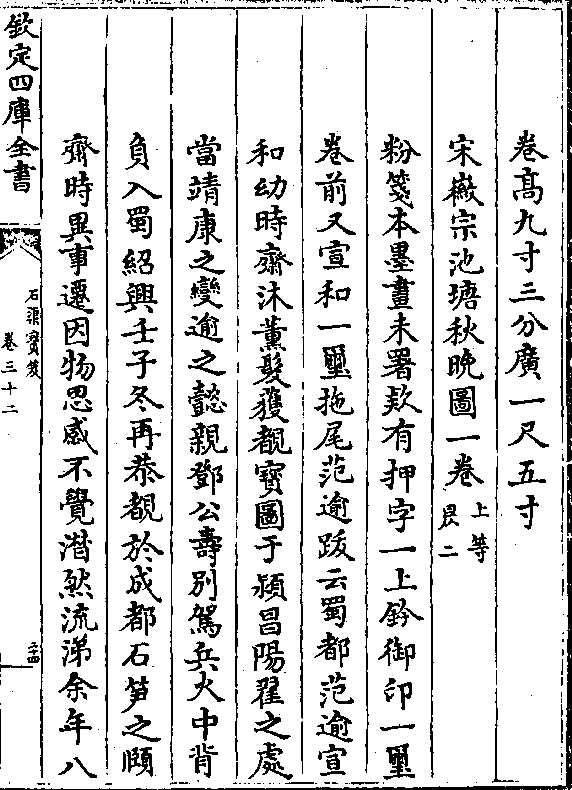 卷髙九寸三分廣一尺五寸
宋徽宗池塘秋晚圖一卷 上等 艮二
粉箋本墨畫未署欵有押字一上鈐御印一璽
卷前又宣和一璽拖尾范逾跋云蜀都范逾宣
和幼時齋沐薰髮獲覩寳圖于潁昌陽翟之處
當靖康之變逾之懿親鄧公壽别駕兵火中背
負入蜀紹興壬子冬再恭覩於成都石笋之頤
齋時異事遷因物思感不覺潸然流涕余年八
欽定四庫全書
石渠寳笈
卷三十二
二十四